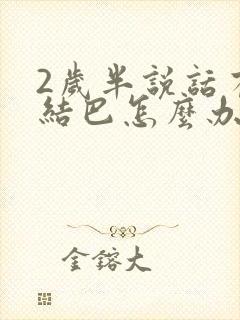 2歲半說話
結巴怎麼办
金鎔大